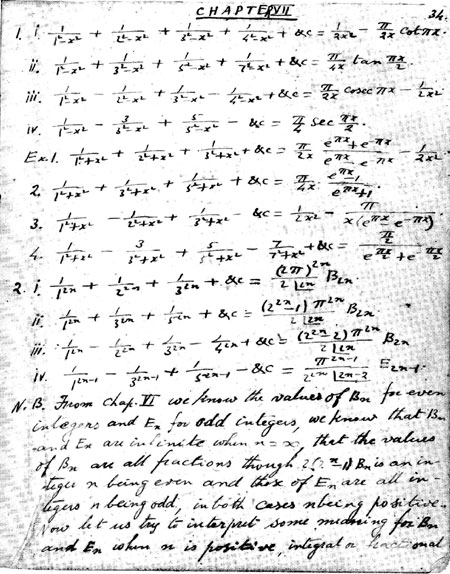 CHAPTER VII 34.
1. i. 1/(1²-x²) + 1/(2²-x²) + 1/(3²-x²) + 1/(4²-x²) + &c = 1/2x² - π/2x cot πx.
ii. 1/(1²-x²) + 1/(3²-x²) + 1/(5²-x²) + 1/(7²-x²) + &c = π/4x tan πx/2.
iii. 1/(1²-x²) - 1/(2²-x²) + 1/(3²-x²) - 1/(4²-x²) + &c = π/2x cosec πx - 1/2x²
iv. 1/(1²-x²) - 3/(3²-x²) + 5/(5²-x²) - &c = π/4 sec πx/2.
Ex.1. 1/(1²+x²) + 1/(2²+x²) + 1/(3²+x²) + &c = π/2x (e^πx + e^-πx)/(e^πx - e^-πx) - 1/2x².
2. 1/(1²+x²) + 1/(3²+x²) + 1/(5²+x²) + &c = π/4x · (e^πx - 1)/(e^πx + 1).
3. 1/(1²+x²) - 1/(2²+x²) + 1/(3²+x²) - &c = 1/2x² - π/(x(e^πx - e^-πx))
4. 1/(1²+x²) - 3/(3²+x²) + 5/(5²+x²) - 7/(7²+x²) + &c = (π/2)/(e^(πx/2) + e^(-πx/2))
2. i. 1/1^2n + 1/2^2n + 1/3^2n + &c = (2π)^2n/(2|2n) B2n.
ii. 1/1^2n + 1/3^2n + 1/5^2n + &c = (2^2n - 1)π^2n/(2|2n) B2n.
iii. 1/1^2n - 1/2^2n + 1/3^2n - 1/4^2n + &c = (2^2n - 2)π^2n/(2|2n) B2n
iv. 1/1^2n-1 - 1/3^2n-1 + 1/5^2n-1 - &c = π^2n-1/(2^2n|2n-2) E2n-1.
N.B. From chap. VI we know the values of Bn for even
integers and En for odd integers, we know that Bn
and En are infinite when n=∞, that the values
of Bn are all fractions though 2(2^n-1)Bn is an in-
teger n being even and those of En are all in-
tegers n being odd, in both cases n being positive.
Now let us try to interpret some meaning for Bn
and En when n is positive, integral or fractional